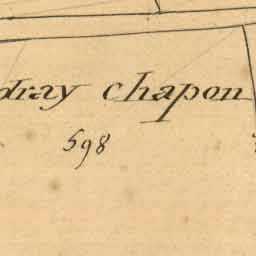 dray chapon
598